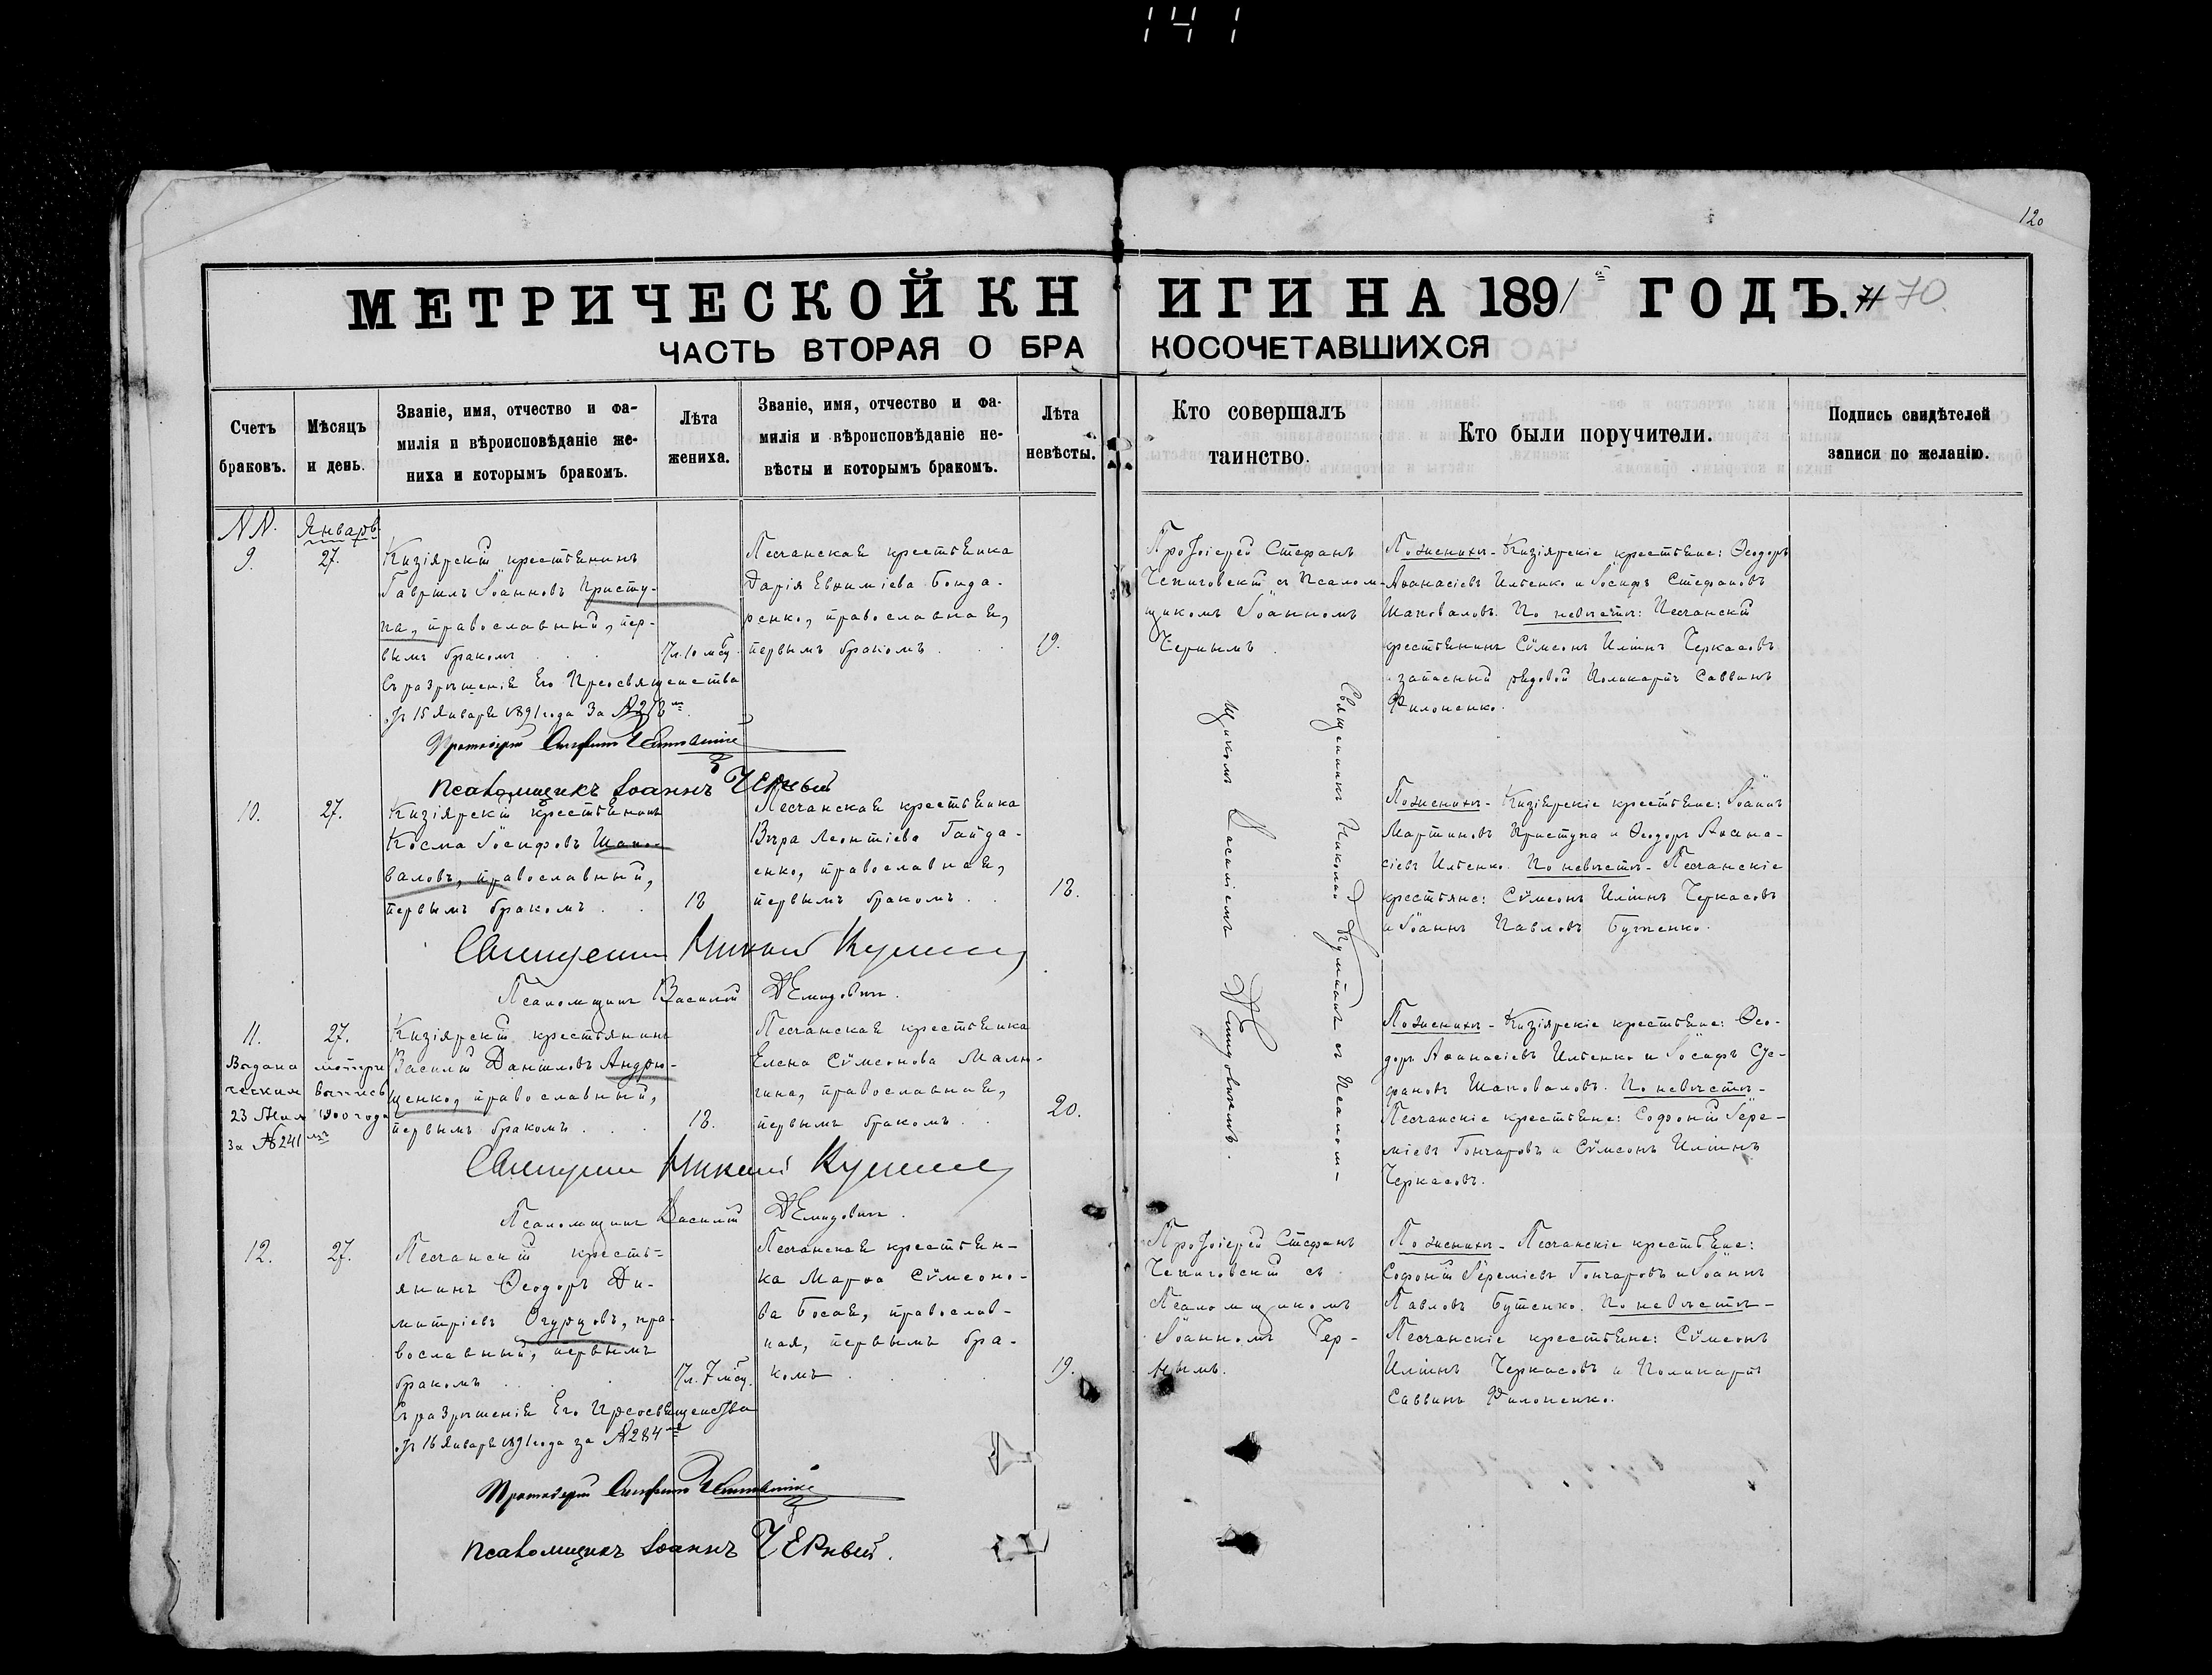 141
120
МЕТРИЧЕСКОЙ КНИГИ НА 1891й ГОДЪ. 71 70.
ЧАСТЬ ВТОРАЯ О БРАКОСОЧЕТАВШИХСЯ
Счетъ браковъ.
Мѣсяцъ и день.
Званіе, имя, отчество и фа-
милія и вѣроисповѣданіе же-
ниха и которымъ бракомъ.
Лѣта жениха.
Званіе, имя, отчество и фа-
милія и вѣроисповѣданіе не-
вѣсты и которымъ бракомъ.
Лѣта невѣсты.
Кто совершалъ таинство.
Кто были поручители.
Подпись свидѣтелей
записи по желанію.
NN.
Январь
9.
27.
Кизіярскій крестьянинъ
Гавріилъ Іоанновъ Присту-
па, православный, пер-
вымъ бракомъ . .
17 л. 10 мсц.
Съ разрѣшенія Его Преосвященства
отъ 15 Января 1891 года За №
Протоіерей Стефанъ Чепиговскій
Псаломщикъ Іоаннъ Черный
Песчанская крестьянка
Дарія Евѳиміева Бонда-
ренко, православная,
первымъ бракомъ . .
19.
Протоіерей Стефанъ
Чепиговскій съ Псалом-
щикомъ Іоанномъ
Чернымъ.
По женихѣ - Кизіярскіе крестьяне: Ѳеодоръ
Аѳанасіевъ Ильенко и Іосифъ Стефановъ
Шаповаловъ. По невѣстѣ: Песчанскій
крестьянинъ Сѵмеонъ Иліинъ Черкасовъ
запасный рядовой Поликарпъ Саввинъ
Филоненко.
10.
27.
Кизіярскій крестьянинъ
Косма Іосифовъ Шапо-
валовъ, православный,
первымъ бракомъ . .
18
Песчанская крестьянка
Вѣра Леонтіева Гайда-
енко, православная,
первымъ бракомъ . .
18.
Священникъ Николай
Псаломщикъ Василій Демидовичъ.
Священникъ Николай съ Псалом-
щикомъ Василіемъ Демидовичемъ.
По женихѣ - Кизіярскіе крестьяне: Іоаннъ
Мартиновъ Приступа и Ѳеодоръ Аѳана-
сіевъ Ильенко. По невѣстѣ - Песчанскіе
крестьяне: Сѵмеонъ Иліинъ Черкасовъ
и Іоаннъ Павловъ Бутенко.
11.
27.
Выдана метри
ческая выпись
23 Мая 1900 года
за №241мъ
Кизіярскій крестьянинъ
Василій Даніиловъ Андрю-
щенко, православный,
первымъ бракомъ . . .
18.
Песчанская крестьянка
Елена Сѵмеонова Маля-
гина, православная,
первымъ бракомъ . .
20.
Священникъ Николай
Псаломщикъ Василій Демидовичъ.
По женихѣ - Кизіярскіе крестьяне: Ѳео-
доръ Аѳанасіевъ Ильенко и Іосифъ Сте-
фановъ Шаповаловъ. По невѣстѣ -
Песчанскіе крестьяне: Софоній Іере-
міевъ Гончаровъ и Сѵмеонъ Иліинъ
Черкасовъ.
12.
27.
Песчанскій кресть-
янинъ Ѳеодоръ Ди-
митріевъ Огурцовъ, пра-
вославный, первымъ
бракомъ . . .
17 л. 7 мсц.
Съ разрѣшенія Его Преосвященства
отъ 16 Января 1891 года за №284мъ
Протоіерей Стефанъ Чепиговскій
Псаломщикъ Іоаннъ Черный.
Песчанская крестьян-
ка Марѳа Сѵмеоно-
ва Босая, православ-
ная, первымъ бра-
комъ . . .
19.
Протоіерей Стефанъ
Чепиговскій съ
Псаломщикомъ
Іоанномъ Чер-
нымъ.
По женихѣ - Песчанскіе крестьяне:
Софоній Іереміевъ Гончаровъ и Іоаннъ
Павловъ Бутенко. По невѣстѣ -
Песчанскіе крестьяне: Сѵмеонъ
Иліинъ Черкасовъ и Поликарпъ
Саввинъ Филоненко.